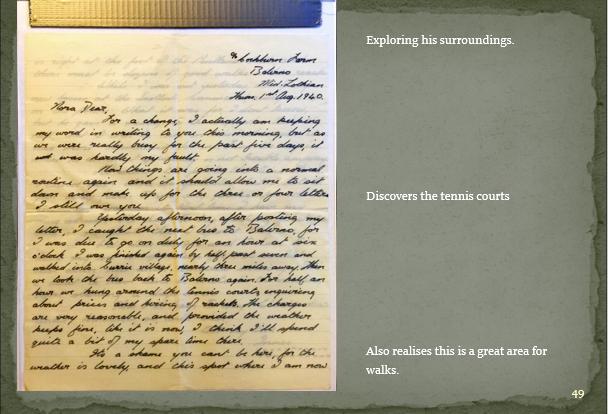 ℅ Cockburn Farm
Balerno
Mid. Lothian
Thurs. 1st Aug. 1940.
Nora Dear,
For a change, I actually am keeping
my word in writing to you this morning, but as
we were really busy for the past five days, it
was hardly my fault.
Now things are going into a normal
routine again and it should allow me to sit
down and make up for the three or four letters
I still owe you.
Yesterday afternoon, after posting my
letter, I caught the next bus to Balerno, for
I was due to go on duty for an hour at six
o'clock. I was finished again by half past seven and
walked into Currie village, nearly three miles away, then
we took the bus back to Balerno again. For half an
hour we hung around the tennis courts, enquiring
about prices and hiring of rackets. The charges
are very reasonable, and provided the weather
keeps fine, like it is now, I think I'll spend
quite a bit of my spare time there.
It's a shame you cant be here, for the
weather is lovely, and this spot where I am now
Exploring his surroundings.
Discovers the tennis courts
Also realises this is a great area for
walks.
49